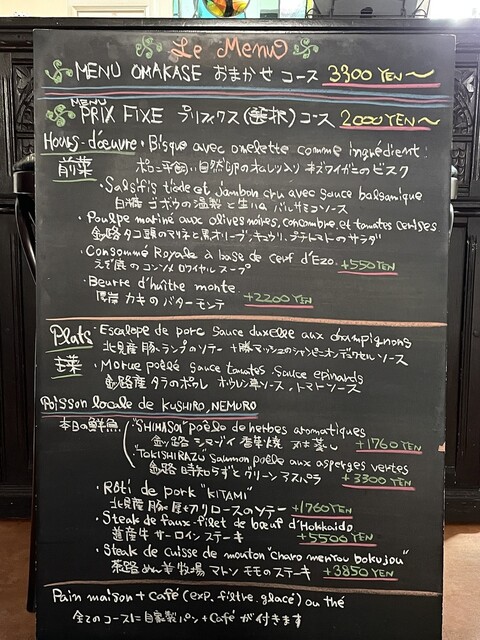 Le Menu
MENU OMAKASE おまかせ コース 3300 YEN〜
MENU
PRIX FIXE プリフィクス(選択)コース 2000 YEN〜
Hours-d'oeuvre
前菜
・Bisque avec omelette comme ingrédient!
自然卵のオムレツ入り ズワイガニのビスク
・Salsifis tiède et jambon cru avec sauce balsamique
白糠 ゴボウの温製と生ハム バルサミコソース
・Poulpe mariné aux olives noires, concombre et tomates cerises
釧路タコ頭のマリネと黒オリーブ、キュウリ、プチトマトのサラダ
・Consommé Royale à base de cerf d'Ezo
えぞ鹿のコンソメ ロワイヤル スープ +550 YEN
・Beurre d'huître monté
厚岸 カキのバターモンテ +2200 YEN
Plats
主菜
・Escalope de porc sauce duxelle aux champignons
北見産 豚ランプのソテー +豚マッシュのシャンピニオンデュクセル ソース
・Morue poêlé sauce tomates. Sauce epinards
釧路産 タラのポワレ ホウレン草ソース、トマトソース
Poisson locale de KUSHIRO, NEMURO
本日の鮮魚
"SHIMASOI" poêle de herbes aromatiques
釧路 シマゾイ 香草焼 +1760 YEN
"TOKISHIRAZU" saumon poêle aux asperges vertes
釧路 時知らずとグリーンアスパラ +3300 YEN
・Rôti de pork "KITAMI"
北見産 豚 厚切りロースのソテー +1760 YEN
・Steak de faux-filet de bœuf d'Hokkaido
道産牛 サーロインステーキ +5500 YEN
・Steak de cuisse de mouton "charo menyou bokujou"
茶路めん羊牧場 マトン モモのステーキ +3850 YEN
Pain maison + Café (exp. filtre. glacé) ou thé
全てのコースに自家製パン+Caféが付きます